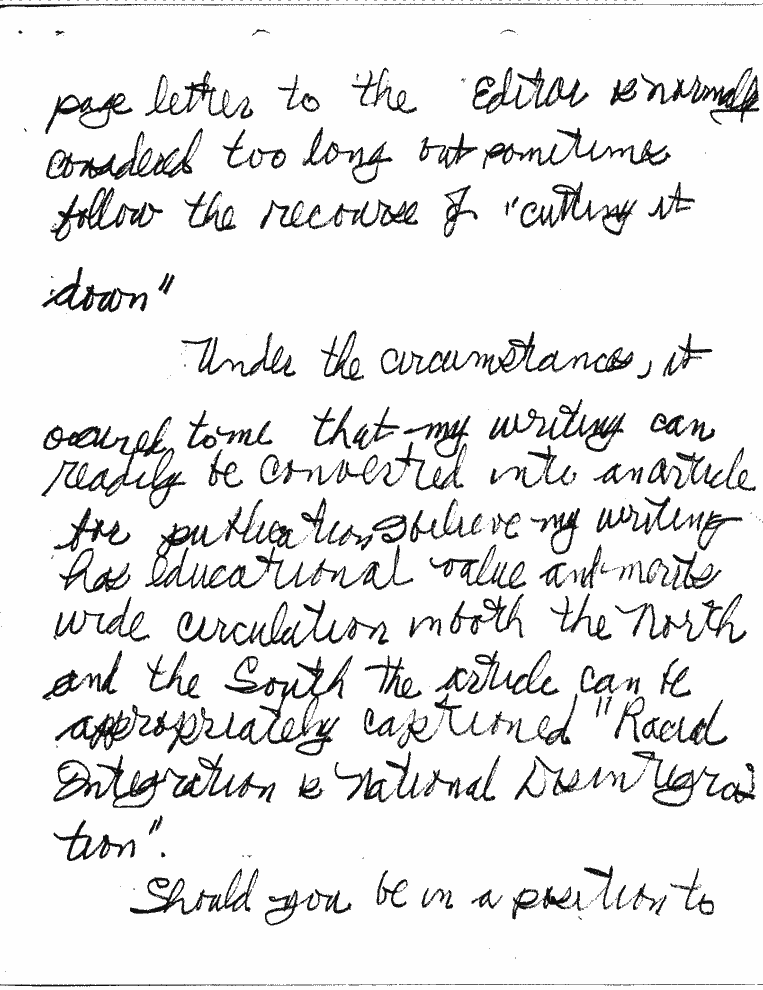 page letter to the Editor is normally
considered too long but sometimes
follow the recourse of "cutting it
down"
Under the circumstances, it
occured to me that my writing can
readily be converted into an article
for publication I believe my writing
has educational value and merits
wide circulation in both the North
and the South the article can be
appropriately captioned "Racial
Integration is National Disintegra
tion".
Should you be in a position to